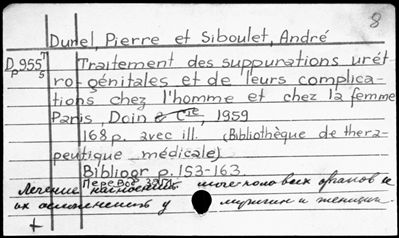 8
Durel, Pierre et Siboulet, André
D 955 T Traitement des suppurations urét-
p 5 ro-génitales et de leurs complica-
tions chez l'homme et chez la femme
Paris, Doin & Cie, 1959
168 p. avec ill. (Bibliothèque de thera-
peutique médicale)
Bibliogr p. 153-163.
Перевод
Лечение нагноений моче-половых органов и
их осложнений у мужчин и женщин.
+